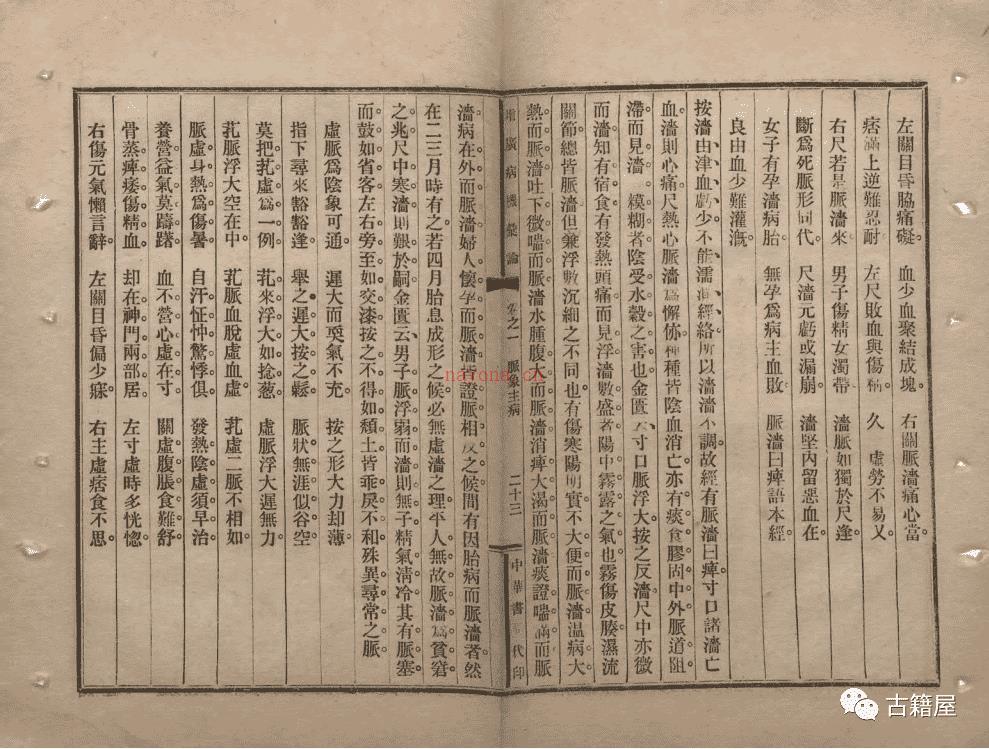 左關目昏脇痛礙 血少血聚結成塊。 右關脈濇痛心當。
痞滿上逆難忍耐 左尺敗血與傷 久 虛勞不易乂。
右尺若是脈濇來 男子傷精女濁帶 濇脈如獨於尺逢。
斷為死脈形同代。 尺濇元虧或漏崩 濇堅內留惡血在。
女子有孕濇病胎 無孕為病主血敗 脈濇曰痺語本經。
良由血少難灌溉。
按濇由津血虧少不能濡 經絡所以濇濇不調故經有脈濇曰痺寸口諸濇亡
血濇則心痛尺熱心脈濇為懈 種種皆陰血消亡亦有痰食膠固中外脈道阻
滯而見濇。模糊者陰受水穀之害也金匱云寸口脈浮大。按之反濇尺中亦微
而濇知有宿食有發熱頭痛而見浮濇數盛者陽中霧露之氣也霧傷皮腠濕流
關節總皆脈濇但兼浮數沉細之不同也有傷寒陽明實不大便而脈濇溫病大
熱而脈濇吐下微喘而脈濇水腫腹大而脈濇消癉大渴而脈濇痰證喘滿而脈
增廣病機彙論 卷之一 脈象主病 二十三 中華書 代印
濇病在外而脈濇婦人懷孕而脈濇 證脈相反之候間有因胎病而脈濇者然
在二三月時有之若四月胎息成形之候必無虛濇之理平人無故脈濇為貧窘
之兆尺中寒濇則艱於嗣金匱云男子脈浮弱而濇則無子精氣清冷其有脈塞
而鼓如省客左右旁至如交漆按之不得如頹土皆乖戾不和殊異尋常之脈
虛脈為陰象可通。 遲大而耎氣不充。 按之形大力却薄
指下尋來豁豁逢 舉之遲大按之鬆 脈狀無涯似谷空
莫把芤虛為一例 芤來浮大如捻蔥 虛脈浮大遲無力
芤脈浮大空在中。 芤脈血脫虛血虛。 芤虛二脈不相如
脈虛身熱為傷暑 自汗怔忡驚悸俱 發熱陰虛須早治
養營益氣莫躊躇 血不營心虛在寸 關虛腹脹食難舒
骨蒸痺痿傷精血 却在神門兩部居 左寸虛時多恍惚
右傷元氣懶言辭 左關目昏偏少寐。 右主虛痞食不思
narona.cn
古籍屋